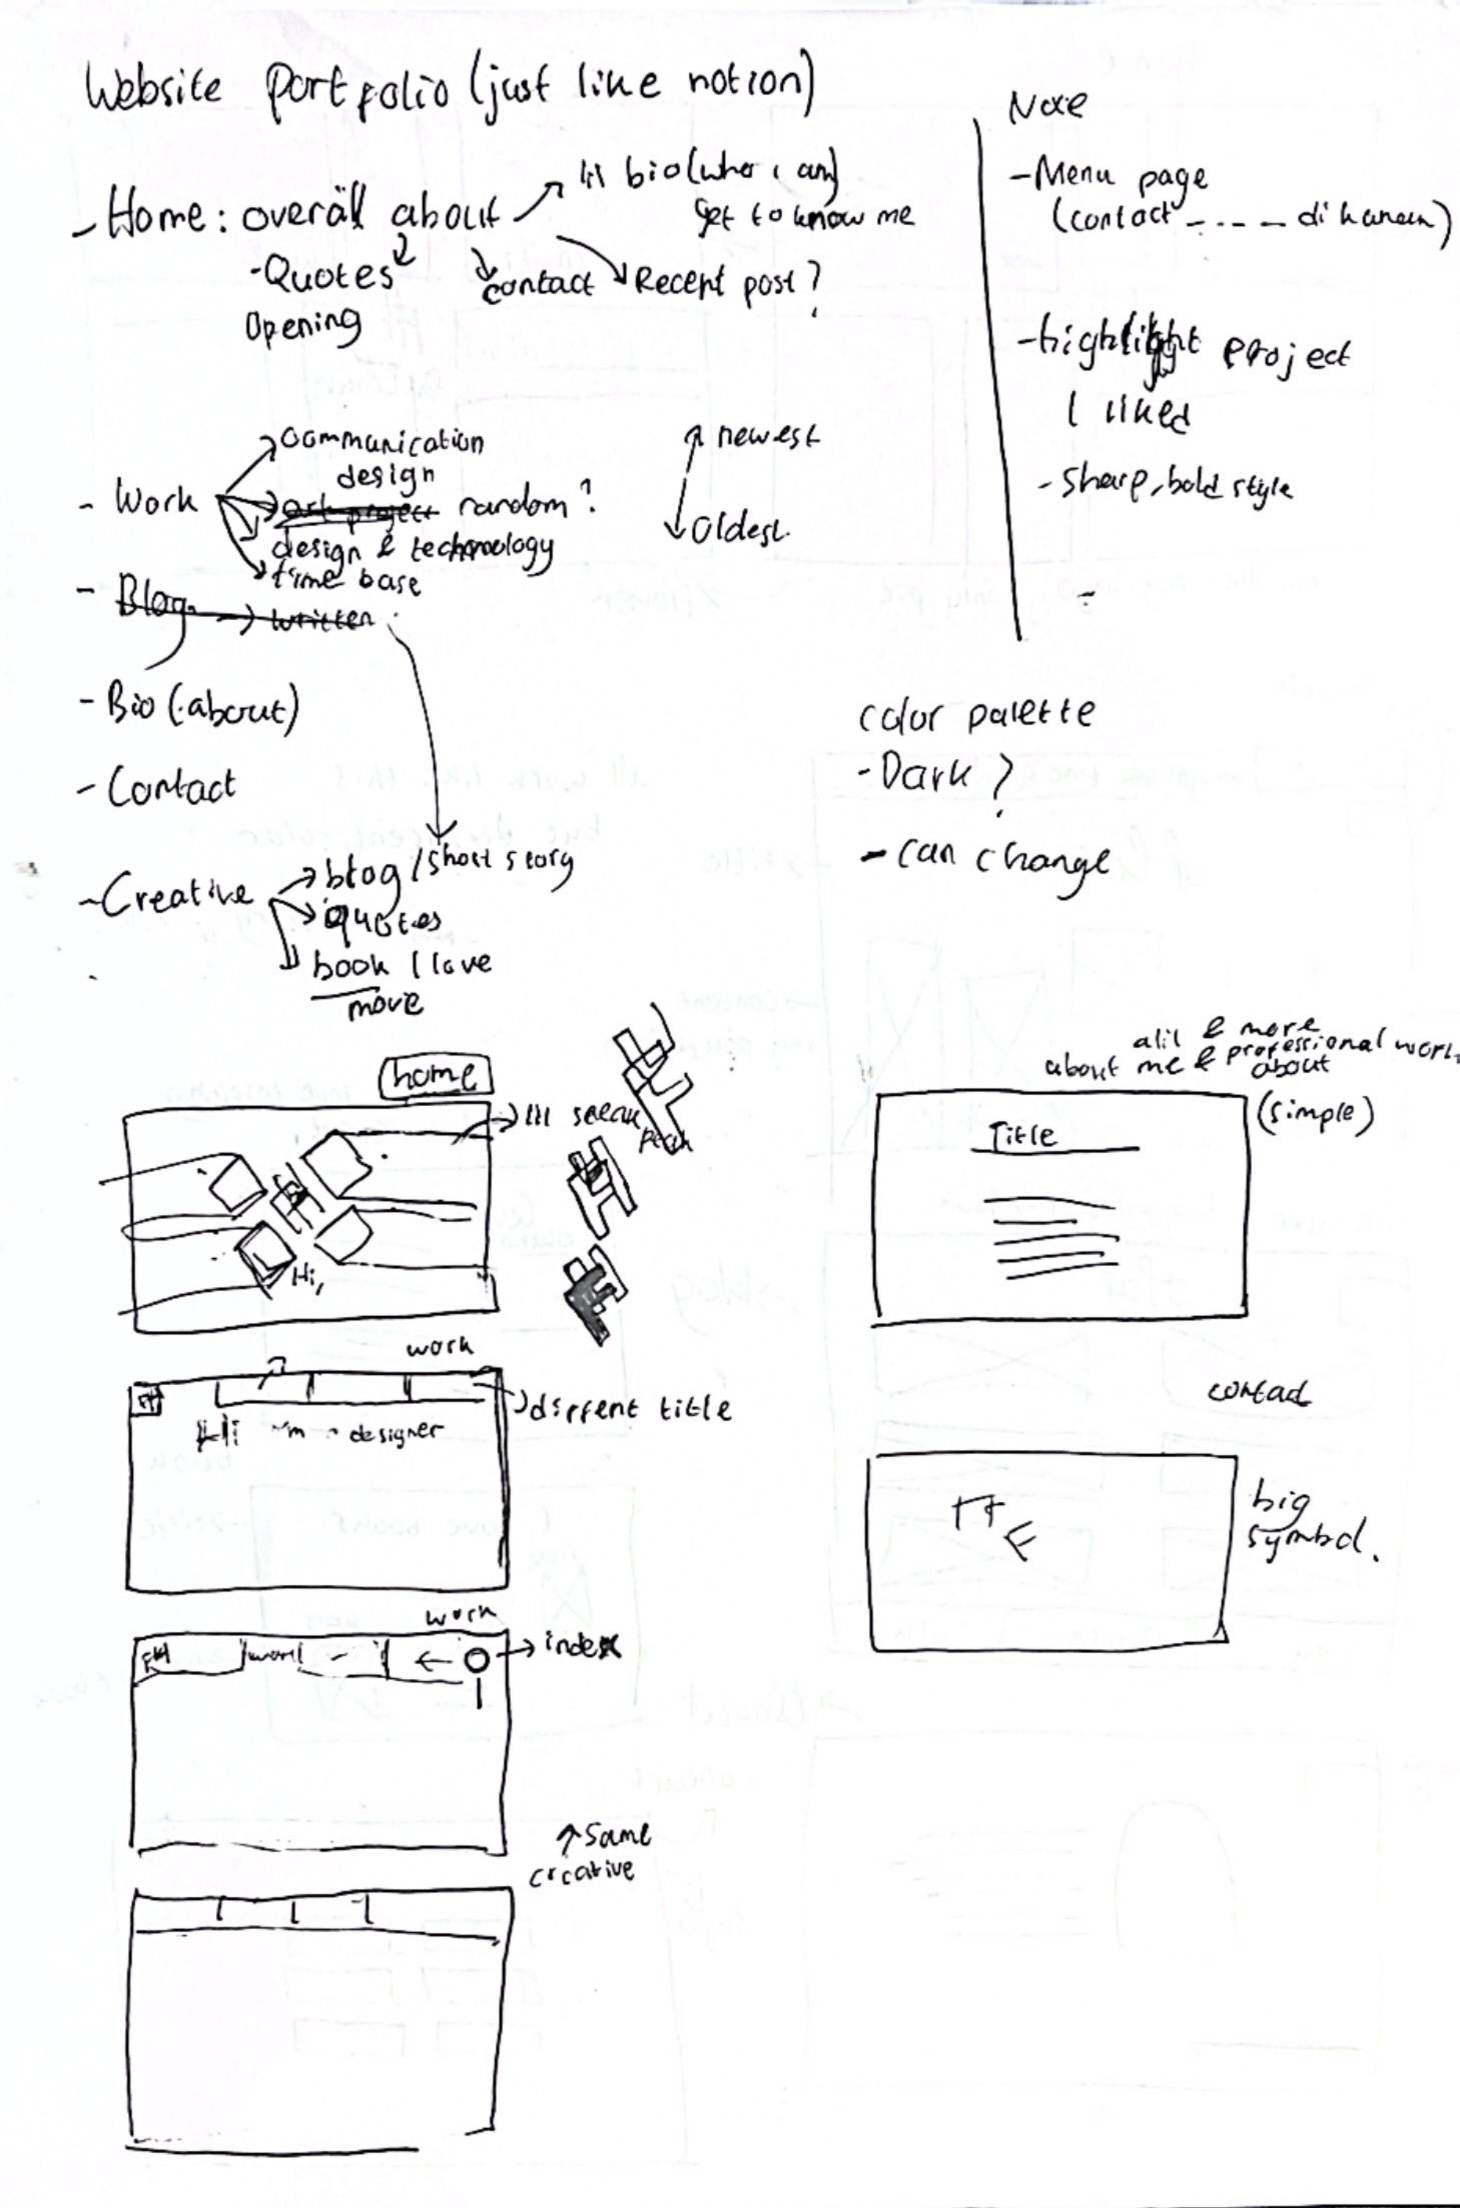 Website portfolio (just like notion)
- Home : overall about
lil bio (who i am)
get to know me
- Quotes
opening
contact
Recent post ?
- Work
communication
design
art project random ?
design & technology
time base
newest
Oldest
- Blog
written
- Bio (about)
- Contact
- Creative
blog / short story
quotes
book I love
move
Note
- Menu page
(contact - - - - di kanan)
- highlight project
I liked
- sharp, bold style
-
color palette
- Dark ?
- can change
home
lil sneak
peak
Hi,
work
different title
designer
work
FH work
index
same
creative
a lil & more
about me & professional work
about
(simple)
Title
contact
big
symbol.